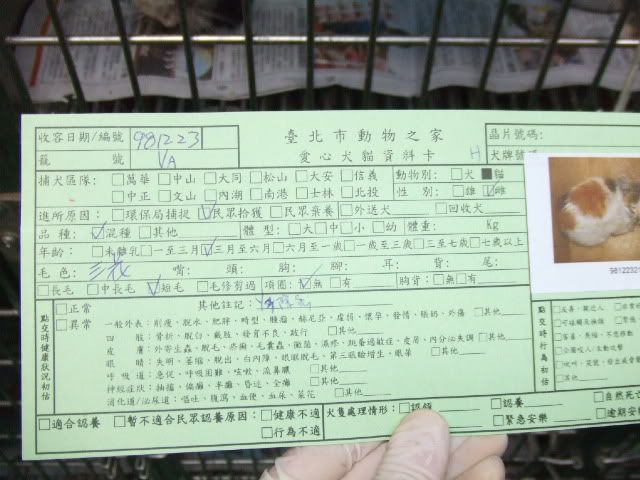 收容日期/編號 981223 臺北市動物之家 晶片號碼:
籠 號 VA 愛心犬貓資料卡 H 犬牌號碼
捕犬區隊: □萬華 □中山 □大同 □松山 □大安 □信義 動物別: □犬 ■貓
□中正 □文山 □內湖 □南港 □士林 □北投 性 別: □雄 ☑雌
進所原因: □環保局捕捉 ☑民眾拾獲 □民眾棄養 □外送犬 □回收犬
品 種: ☑混種 □其他 體 型: □大 □中 □小 □幼 體重: Kg
年齡: □未離乳 □一至三月 ☑三月至六月 □六月至一歲 □一歲至三歲 □三至七歲 □七歲以上
毛 色: 三花 嘴: 頭: 胸: 腳: 耳: 背: 尾:
□長毛 □中長毛 ☑短毛 □毛修剪過 項圈: ☑無 □有 胸背: □無 □有
9812232
點交時健康狀況初估 □正常 其他註記:
□異常 一般外表: 削瘦、脫水、肥胖、畸型、腫瘤、赫尼亞、虛弱、懷孕、發情、哺奶、外傷 □其他
四 肢: 骨折、脫臼、截肢、發育不良、跛行 □其他
皮 膚: 外寄生蟲、脫毛、疥癬、毛囊蟲、黴菌、濕疹、跳蚤過敏症、皮屑、內分泌失調 □其他
眼 睛: 失明、萎縮、脫出、白內障、眼瞼脫毛、第三眼瞼增生、眼萎 □其他
呼 吸 道: 急促、呼吸困難、咳嗽、流鼻膿 □其他
神經症狀: 抽搐、偏癱、半癱、昏迷、全癱 □其他
消化道/泌尿道: 嘔吐、腹瀉、血便、血尿、尿花 □其他
點交時行為初估
□適合認養 □暫不適合民眾認養原因: □健康不適 犬隻處理情形: □認領 □認養 □自然死亡
□行為不適 □緊急安樂 □逾期安樂